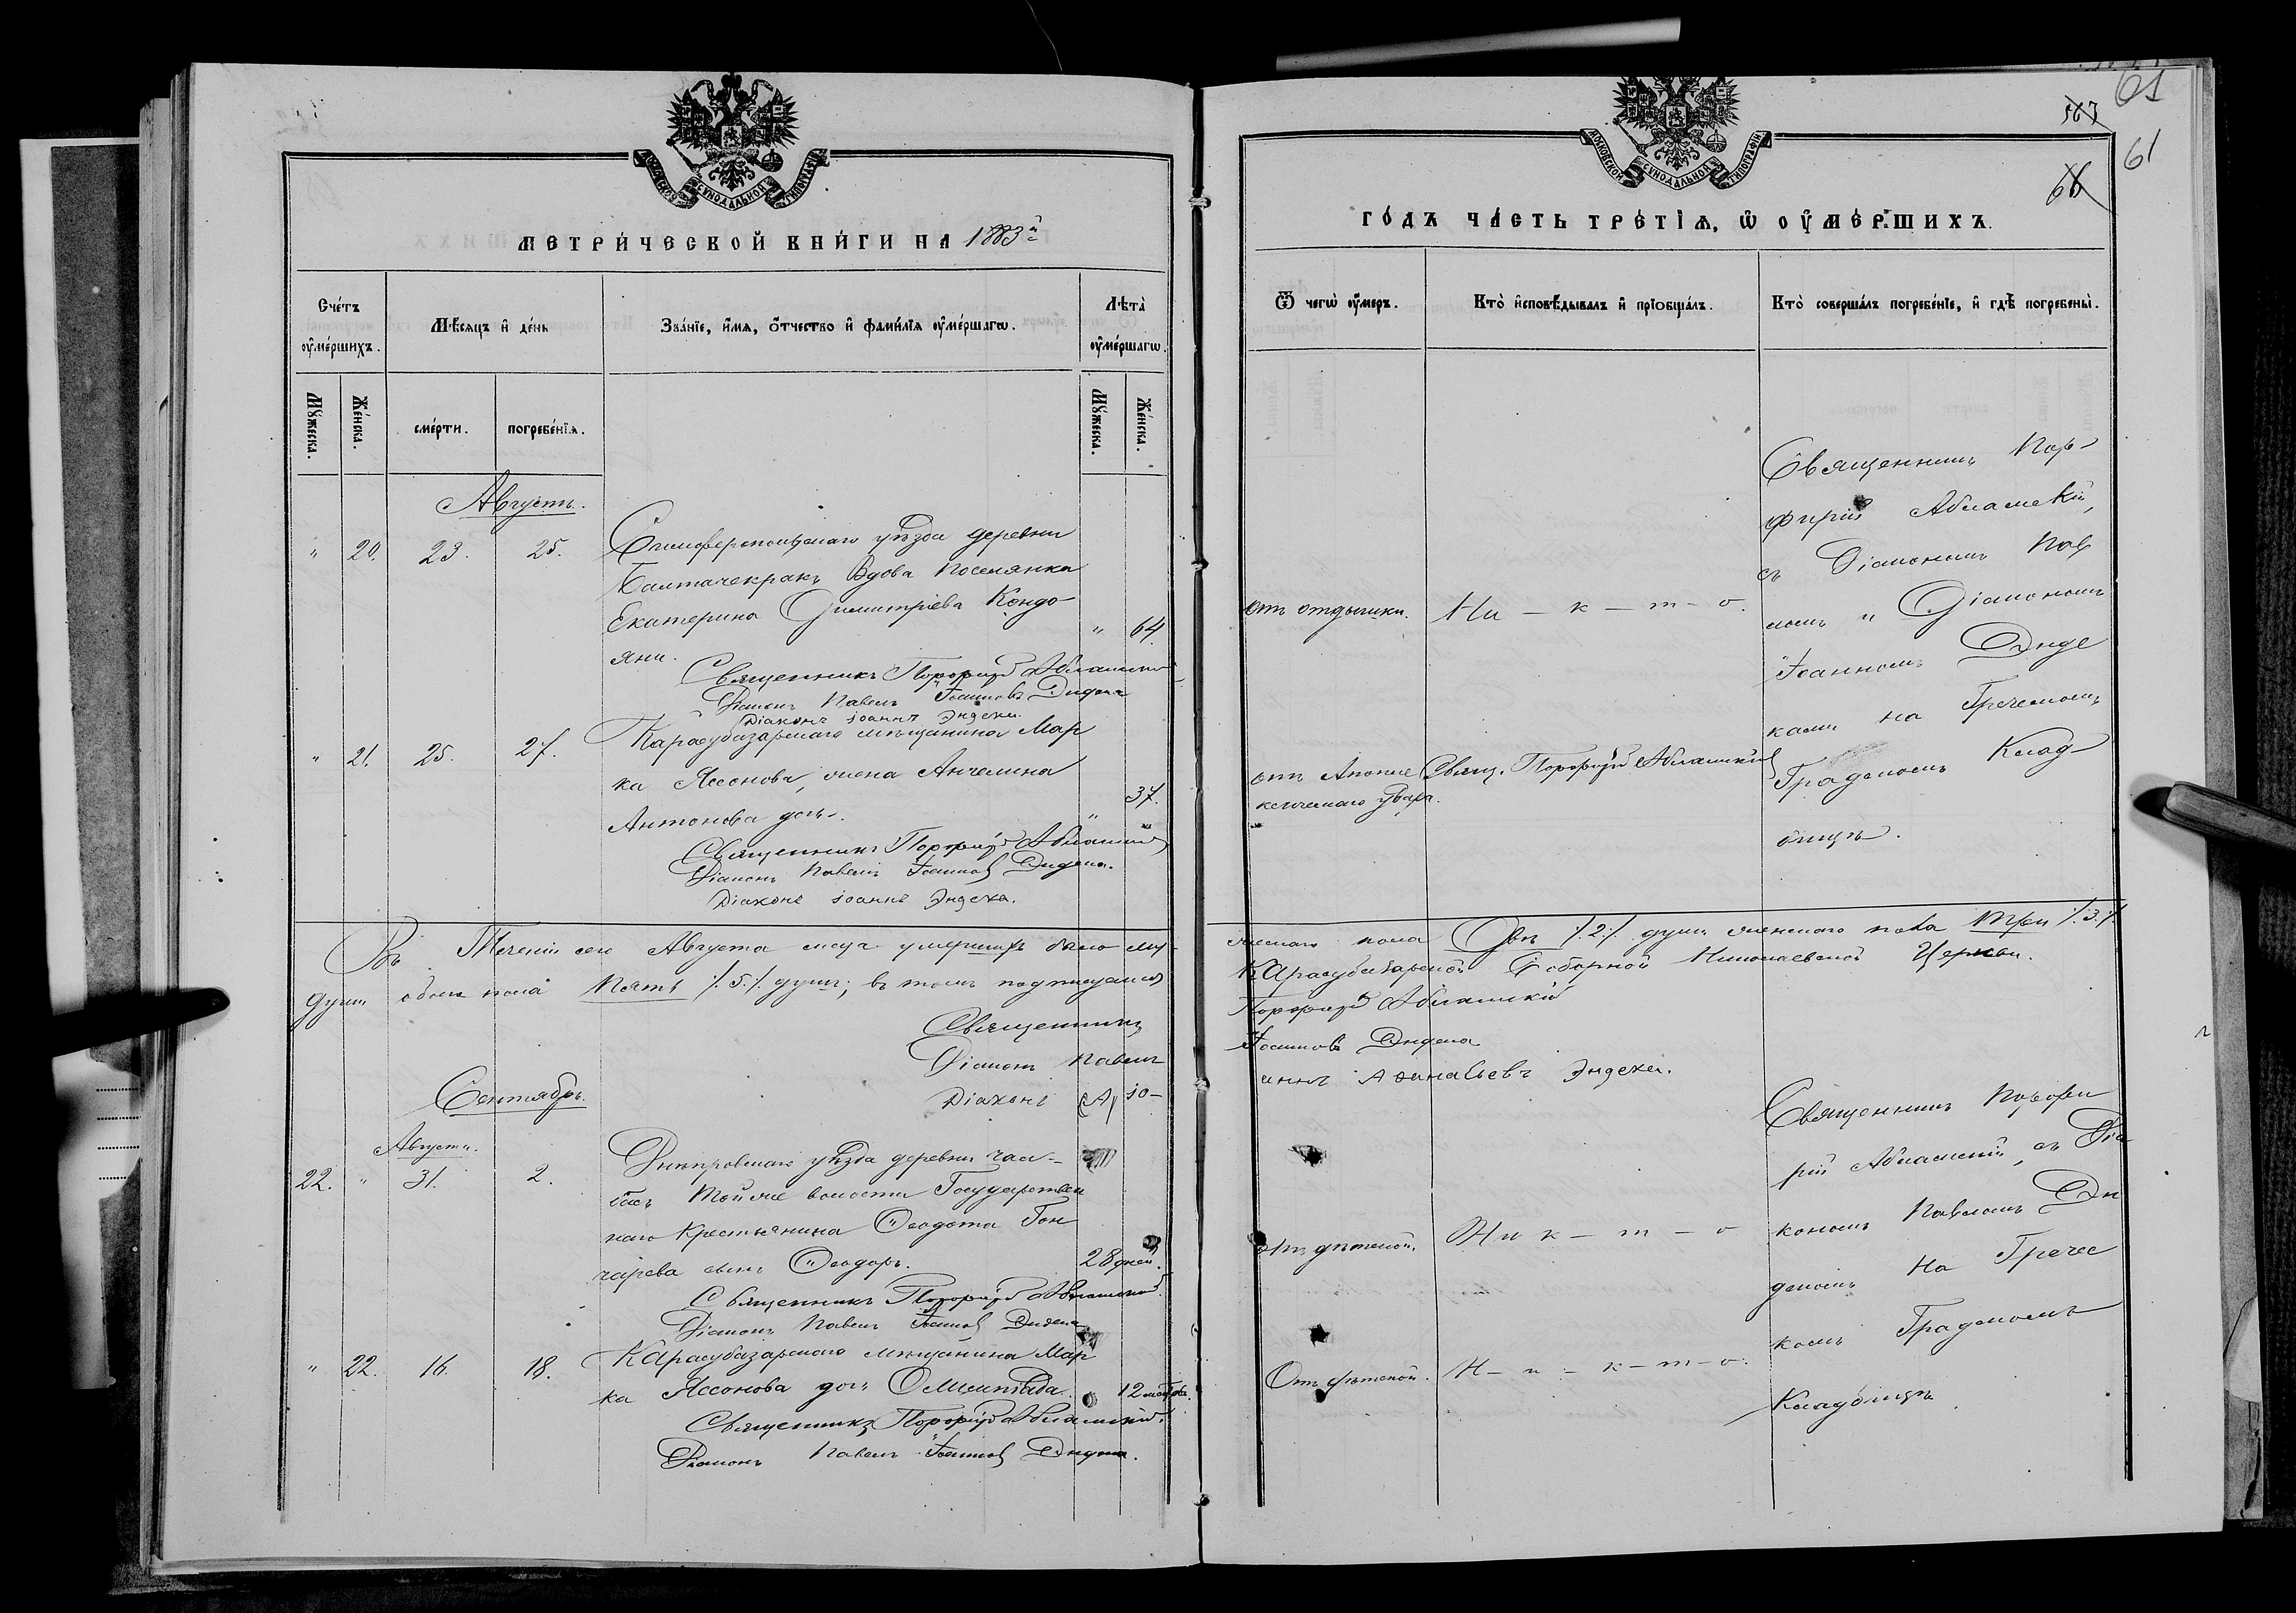 МОСКОВСКОЙ СѴНОДАЛЬНОЙ ТИПОГРАФІИ
МЕТРИ́ЧЕСКОЙ КНИ́ГИ НА 1883й
Сче́тъ ᲂу҆ме́ршихъ.
Мѣ́сяцъ и҆ де́нь
Зва́нїе, и҆́мя, ѻ҆́тчество и҆ фами́лїя ᲂу҆ме́ршагѡ.
Лѣта̀ ᲂу҆ме́ршагѡ.
Мꙋ́жеска.
Же́нска.
сме́рти.
погребе́нїя.
Мꙋ́жеска.
Же́нска.
Августъ.
" 20. 23. 25. Симферопольскаго уѣзда деревни
Балтачекракъ Вдова Поселянка
Екатерина Димитріева Кондо
яни. " 64.
Священникъ Порфирій Абламскій
Діаконъ Павелъ Іоанновъ Дидека
Діаконъ іоаннъ Эндека.
" 21. 25. 27. Карасубазарскаго мѣщанина Мар
ка Яссонова, жена Ангелина
Антонова дочь. " 37.
Священникъ Порфирій Абламскій
Діаконъ Павелъ Іоанновъ Дидека.
Діаконъ іоаннъ Эндека.
Въ Теченіи сего Августа мѣся. умершихъ было му
душъ обоего пола Пять /.5./ душъ; въ томъ подписуемся
Священникъ
Діаконъ Павелъ
Діаконъ іо-
Сентябрь.
Августа.
22. " 31. 2. Днѣпровскаго уѣзда деревни Чал-
басъ Тойже волости Государствен
наго Крестьянина Ѳеодота Гон
чарева сынъ Ѳеодоръ. 28 дней.
Священникъ Порфирій Абламскій.
Діаконъ Павелъ Іоанновъ Дидека
" 22. 16. 18. Карасубазарскаго мѣщанина Мар
ка Яссонова дочь Олимпіада. 12
Священникъ Порфирій Абламскій.
Діаконъ Павелъ Іоанновъ Дидека.
61
567
61
66
МОСКОВСКОЙ СѴНОДАЛЬНОЙ ТИПОГРАФІИ
ГО́ДЪ ЧА́СТЬ ТРЕ́ТІЯ, Ѡ҆ ОУ҆МЕ́РШИХЪ.
Ѿ чегѡ̀ ᲂу҆́меръ.
Кто̀ и҆сповѣ́дывалъ и҆ прїѡбща́лъ.
Кто̀ соверша́лъ погребе́нїе, и҆ гдѣ̀ погребены̀.
отъ отдышки.
Ни - к - т - о.
Священникъ Пор-
фирій Абламскій,
съ Діакономъ Пав
ломъ и Діакономъ
Іоанномъ Энде
ками на Греческомъ
Градскомъ Клад-
бищѣ.
отъ Апопле
ксическаго удара.
Свящ. Порфирій Абламскій
жескаго пола Двѣ /.2./ душъ женскаго пола Три /.3./
Карасубазарской Соборной Николаевской Церкви.
Порфирій Абламскій
Іоанновъ Дидека
аннъ Аѳанасьевъ Эндека.
отъ дѣтской.
Ни к - т - о
Священникъ Порфи
рій Абламскій, съ Діа
кономъ Павломъ Ди
декомъ На Гречес
комъ Градскомъ
Кладбищѣ
Отъ дѣтской.
Н - и - к - т - о.